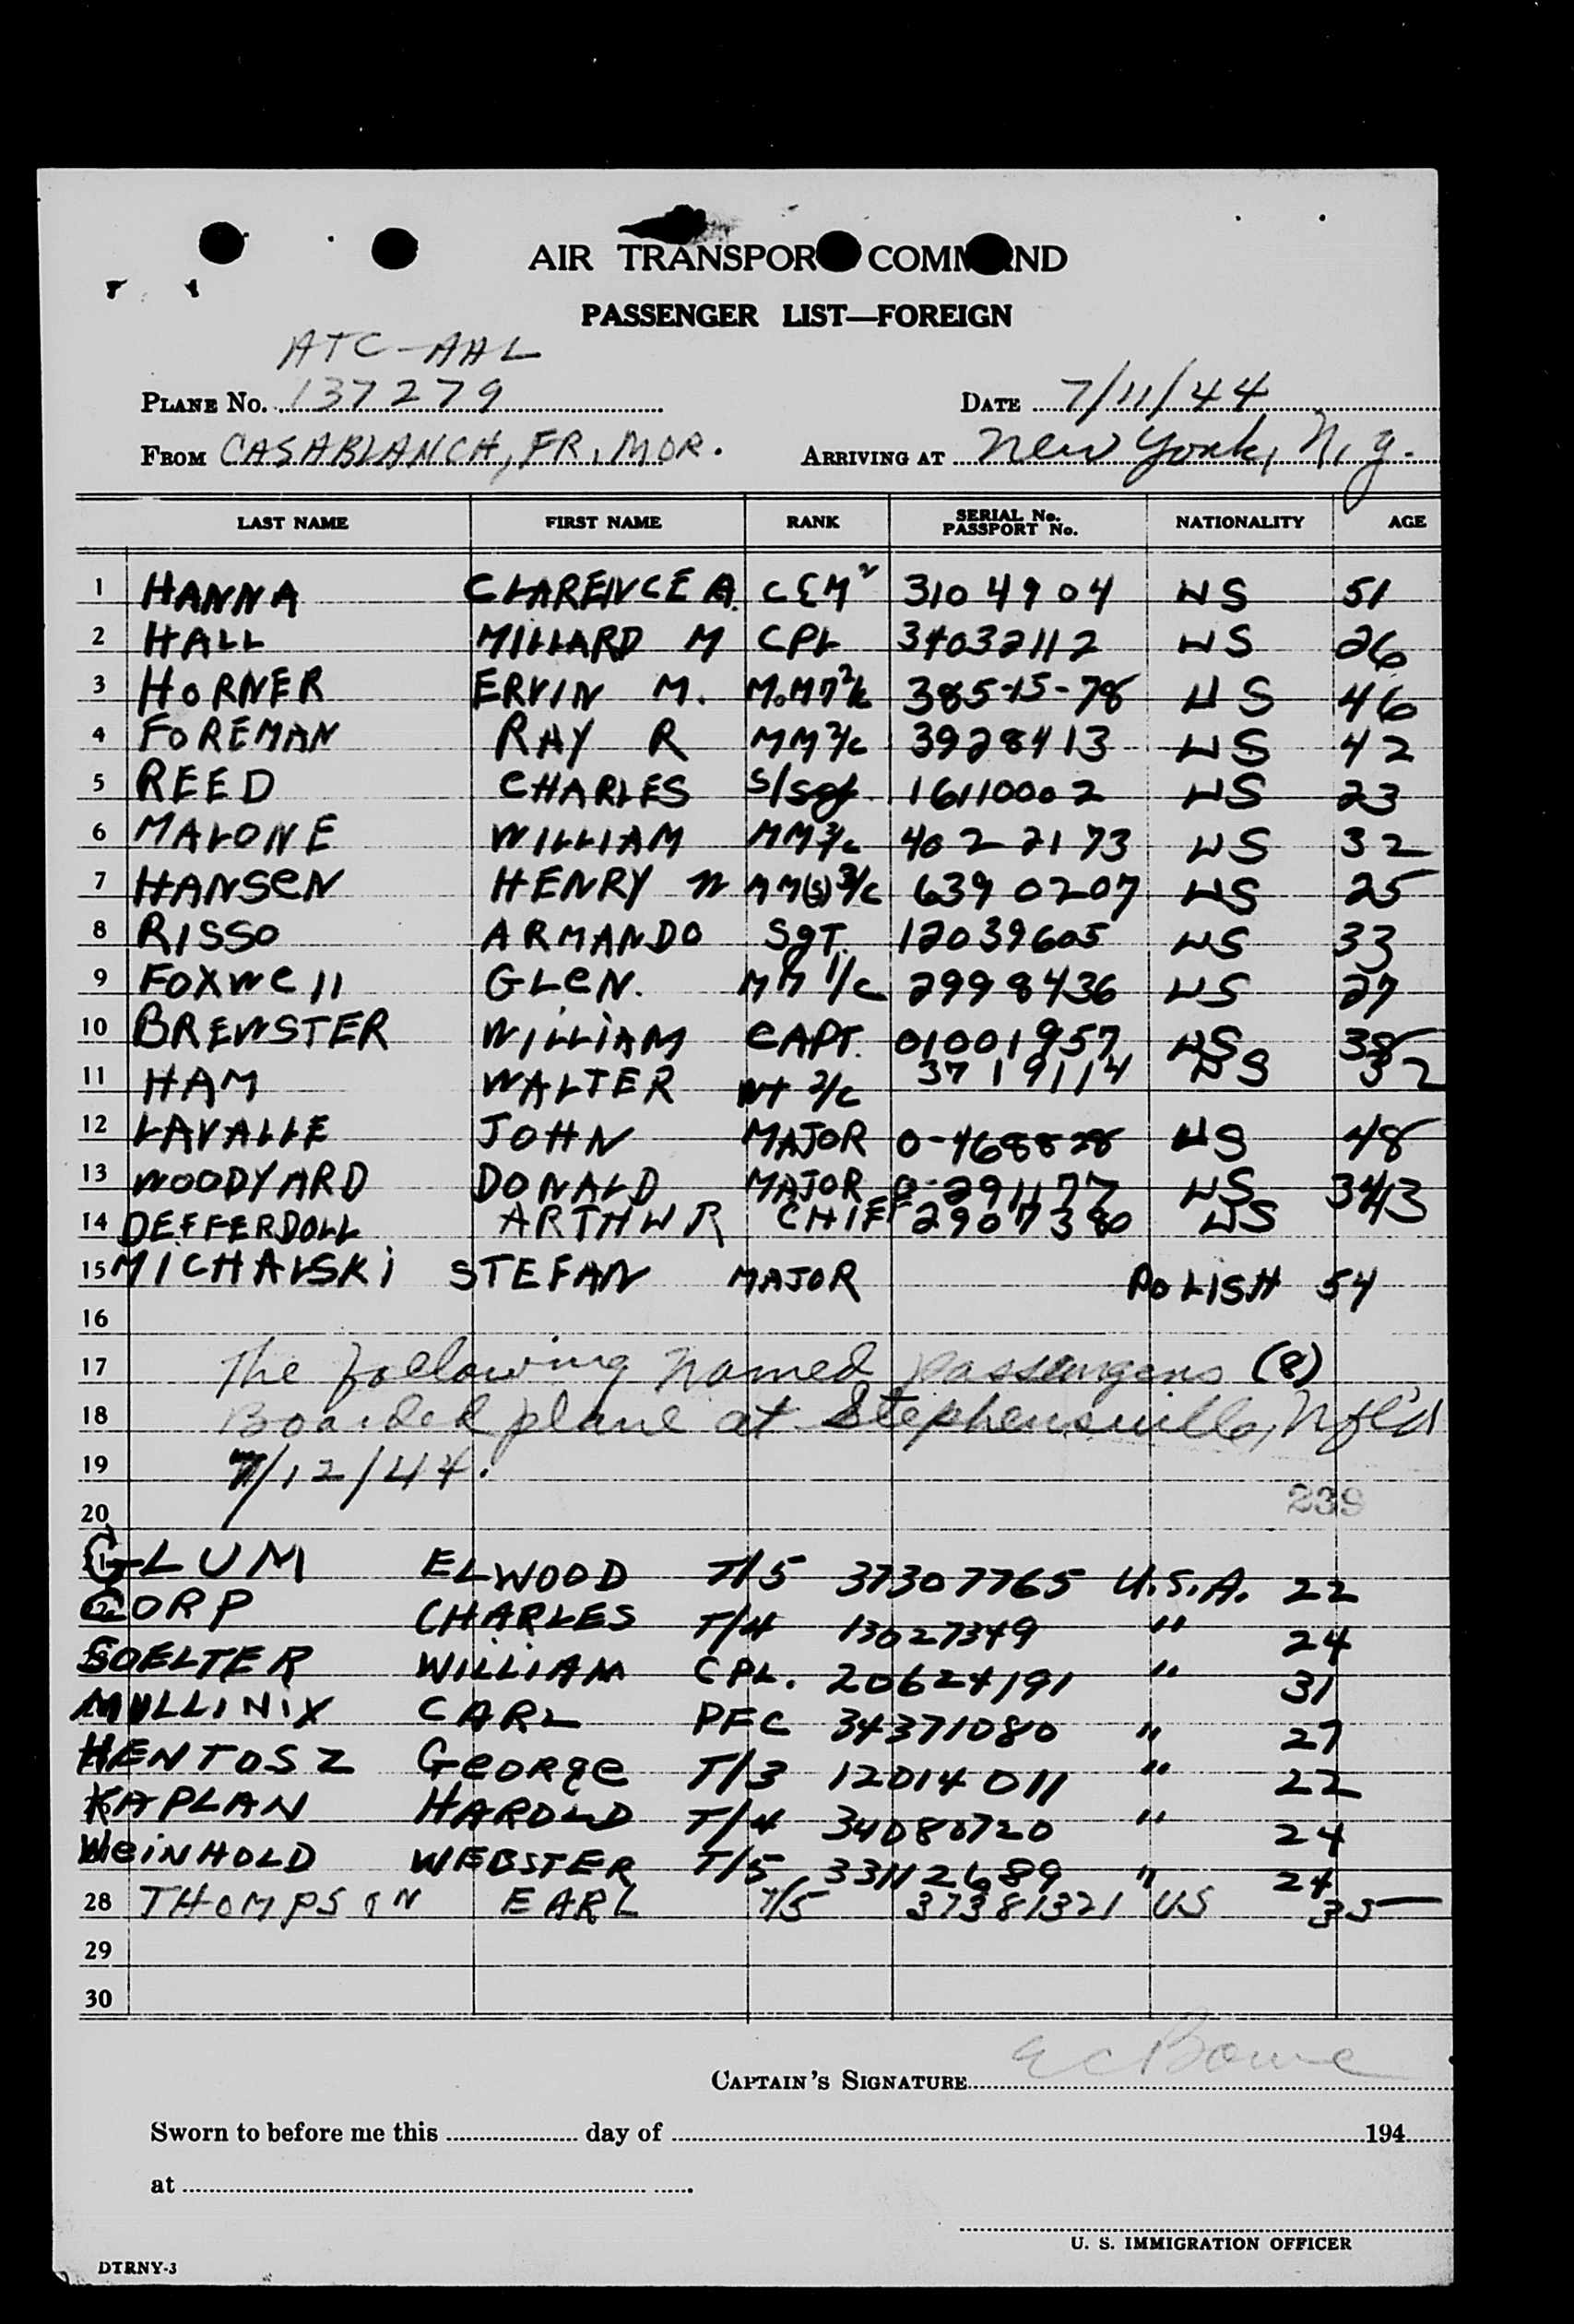 AIR TRANSPORT COMMAND
PASSENGER LIST—FOREIGN
ATC-AAL
PLANE No. 137279 DATE 7/11/44
FROM CASABLANCA, FR. MOR. ARRIVING AT New York, N.Y.
LAST NAME FIRST NAME RANK SERIAL No. PASSPORT No. NATIONALITY AGE
1 HANNA CLARENCE A. CEM 3104904 US 51
2 HALL MILLARD M CPL 34032112 US 26
3 HORNER ERVIN M. 385-15-78 US 46
4 FOREMAN RAY R MM2/c 3928413 US 42
5 REED CHARLES S/Sgt. 16110002 US 23
6 MALONE WILLIAM MM3/c 402 2173 US 32
7 HANSEN HENRY MM(S)3/c 639 0207 US 25
8 RISSO ARMANDO SgT. 12039605 US 33
9 FOXWELL GLEN. MM 1/c 2998436 US 27
10 BREWSTER WILLIAM CAPT. 01001957 US 38
11 HAM WALTER WT 2/c 3719114 US 32
12 LAVALLE JOHN MAJOR 0-468828 US 48
13 WOODYARD DONALD MAJOR 0-291177 US 34
14 DEFFERDOLL ARTHUR CHIEF 2907380 US 43
15 MICHALSKI STEFAN MAJOR POLISH 54
16
17 The following named passengers (8)
18 Boarded plane at Stephensville, Nfld
19 7/12/44.
20 239
GLUM ELWOOD T/5 37307765 U.S.A. 22
CORP CHARLES T/4 13027349 " 24
SOELTER WILLIAM CPL. 20624191 " 31
MULLINIX CARL PFC 34371080 " 27
HENTOSZ GEORGE T/3 12014011 " 22
KAPLAN HAROLD T/4 34080720 " 24
WEINHOLD WEBSTER T/5 33112689 " 24
28 THOMPSON EARL T/5 37381321 US 35
29
30
CAPTAIN'S SIGNATURE E C Bowe
Sworn to before me this day of 194
at
U. S. IMMIGRATION OFFICER
DTRNY-3